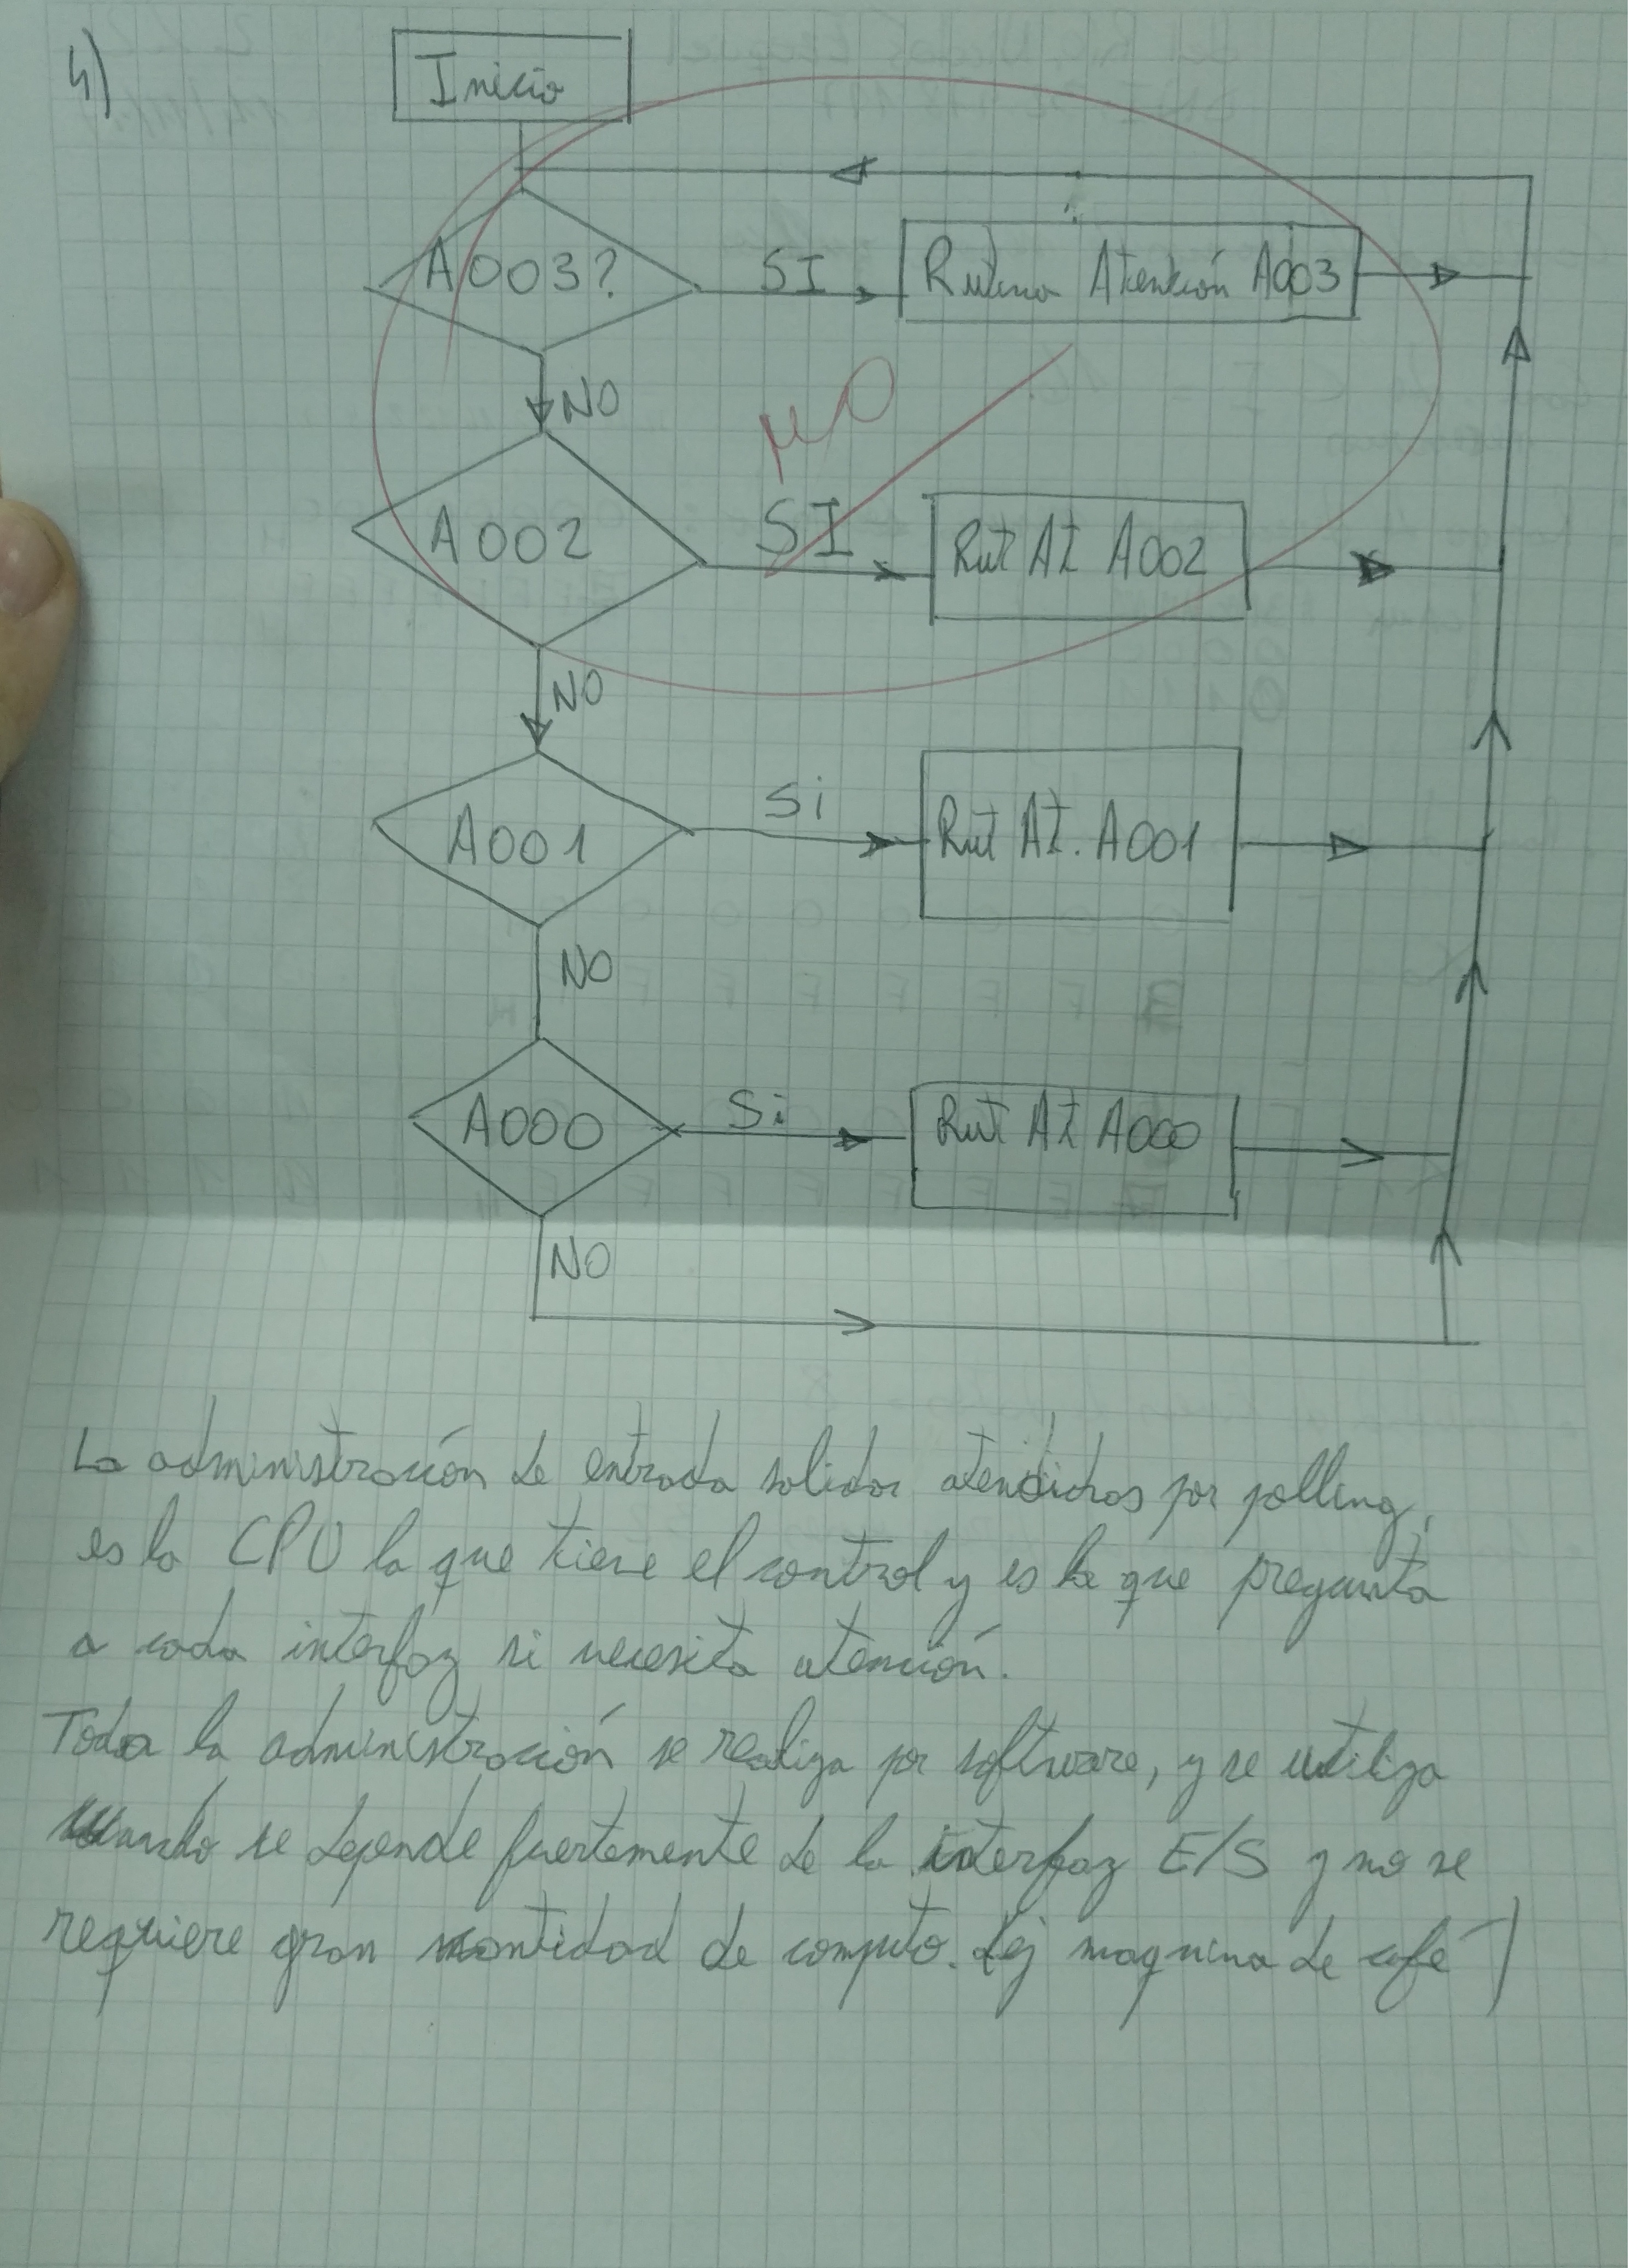 4)
Inicio
A003?
SI
Rutina Atención A003
NO
A002
SI
Rut At A002
NO
A001
Si
Rut At. A001
NO
A000
Si
Rut At A000
NO
La administración de entrada salidas atendidas por polling,
es la CPU la que tiene el control y es la que pregunta
a cada interfaz si necesita atención.
Toda la administración se realiza por software, y se utiliza
cuando se depende fuertemente de la interfaz E/S y no se
requiere gran cantidad de computo. (ej maquina de café)